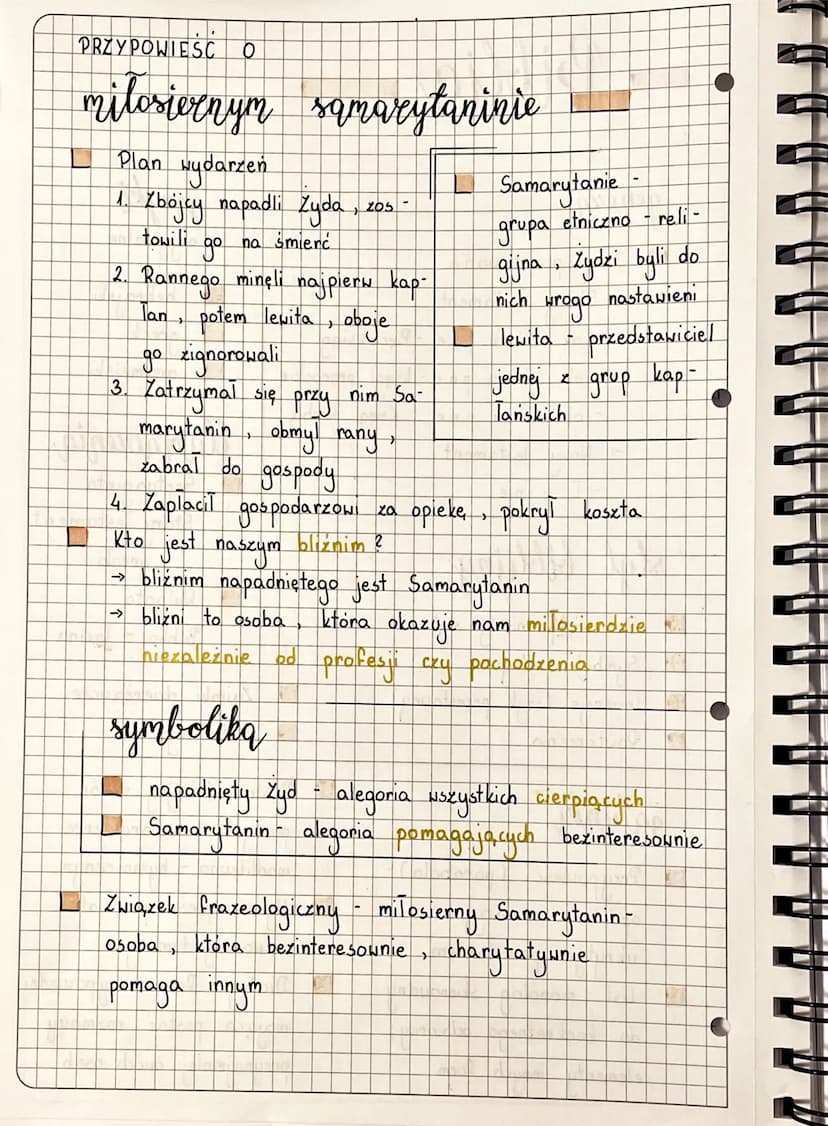 PRZYPOWIEŚĆ O
miłosiernym samarytaninie
Plan wydarzeń
1. Zbójcy napadli Żyda, zos-
towili go na śmierć
2. Rannego minęli najpierw kap-
łan, potem lewita, oboje
go zignorowali
3. Zatrzymał się przy nim Sa-
marytanin, obmył rany,
zabrał do gospody
4. Zapłacił gospodarzowi za opiekę, pokrył koszta
Samarytanie -
grupa etniczno - reli-
gijna, Żydzi byli do
nich wrogo nastawieni
lewita - przedstawiciel
jednej z grup kap-
łańskich
Kto jest naszym bliźnim?
→ bliźnim napadniętego jest Samarytanin
→ bliźni to osoba, która okazuje nam miłosierdzie
niezależnie od profesji czy pochodzenia
symbolika
napadnięty Żyd - alegoria wszystkich cierpiących
Samarytanin - alegoria pomagających bezinteresownie
Związek frazeologiczny - miłosierny Samarytanin-
osoba, która bezinteresownie, charytatywnie
pomaga innym